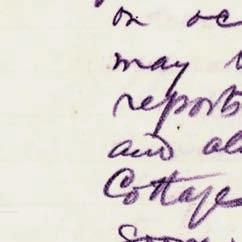 on oc
may
reports
and al
Cottage